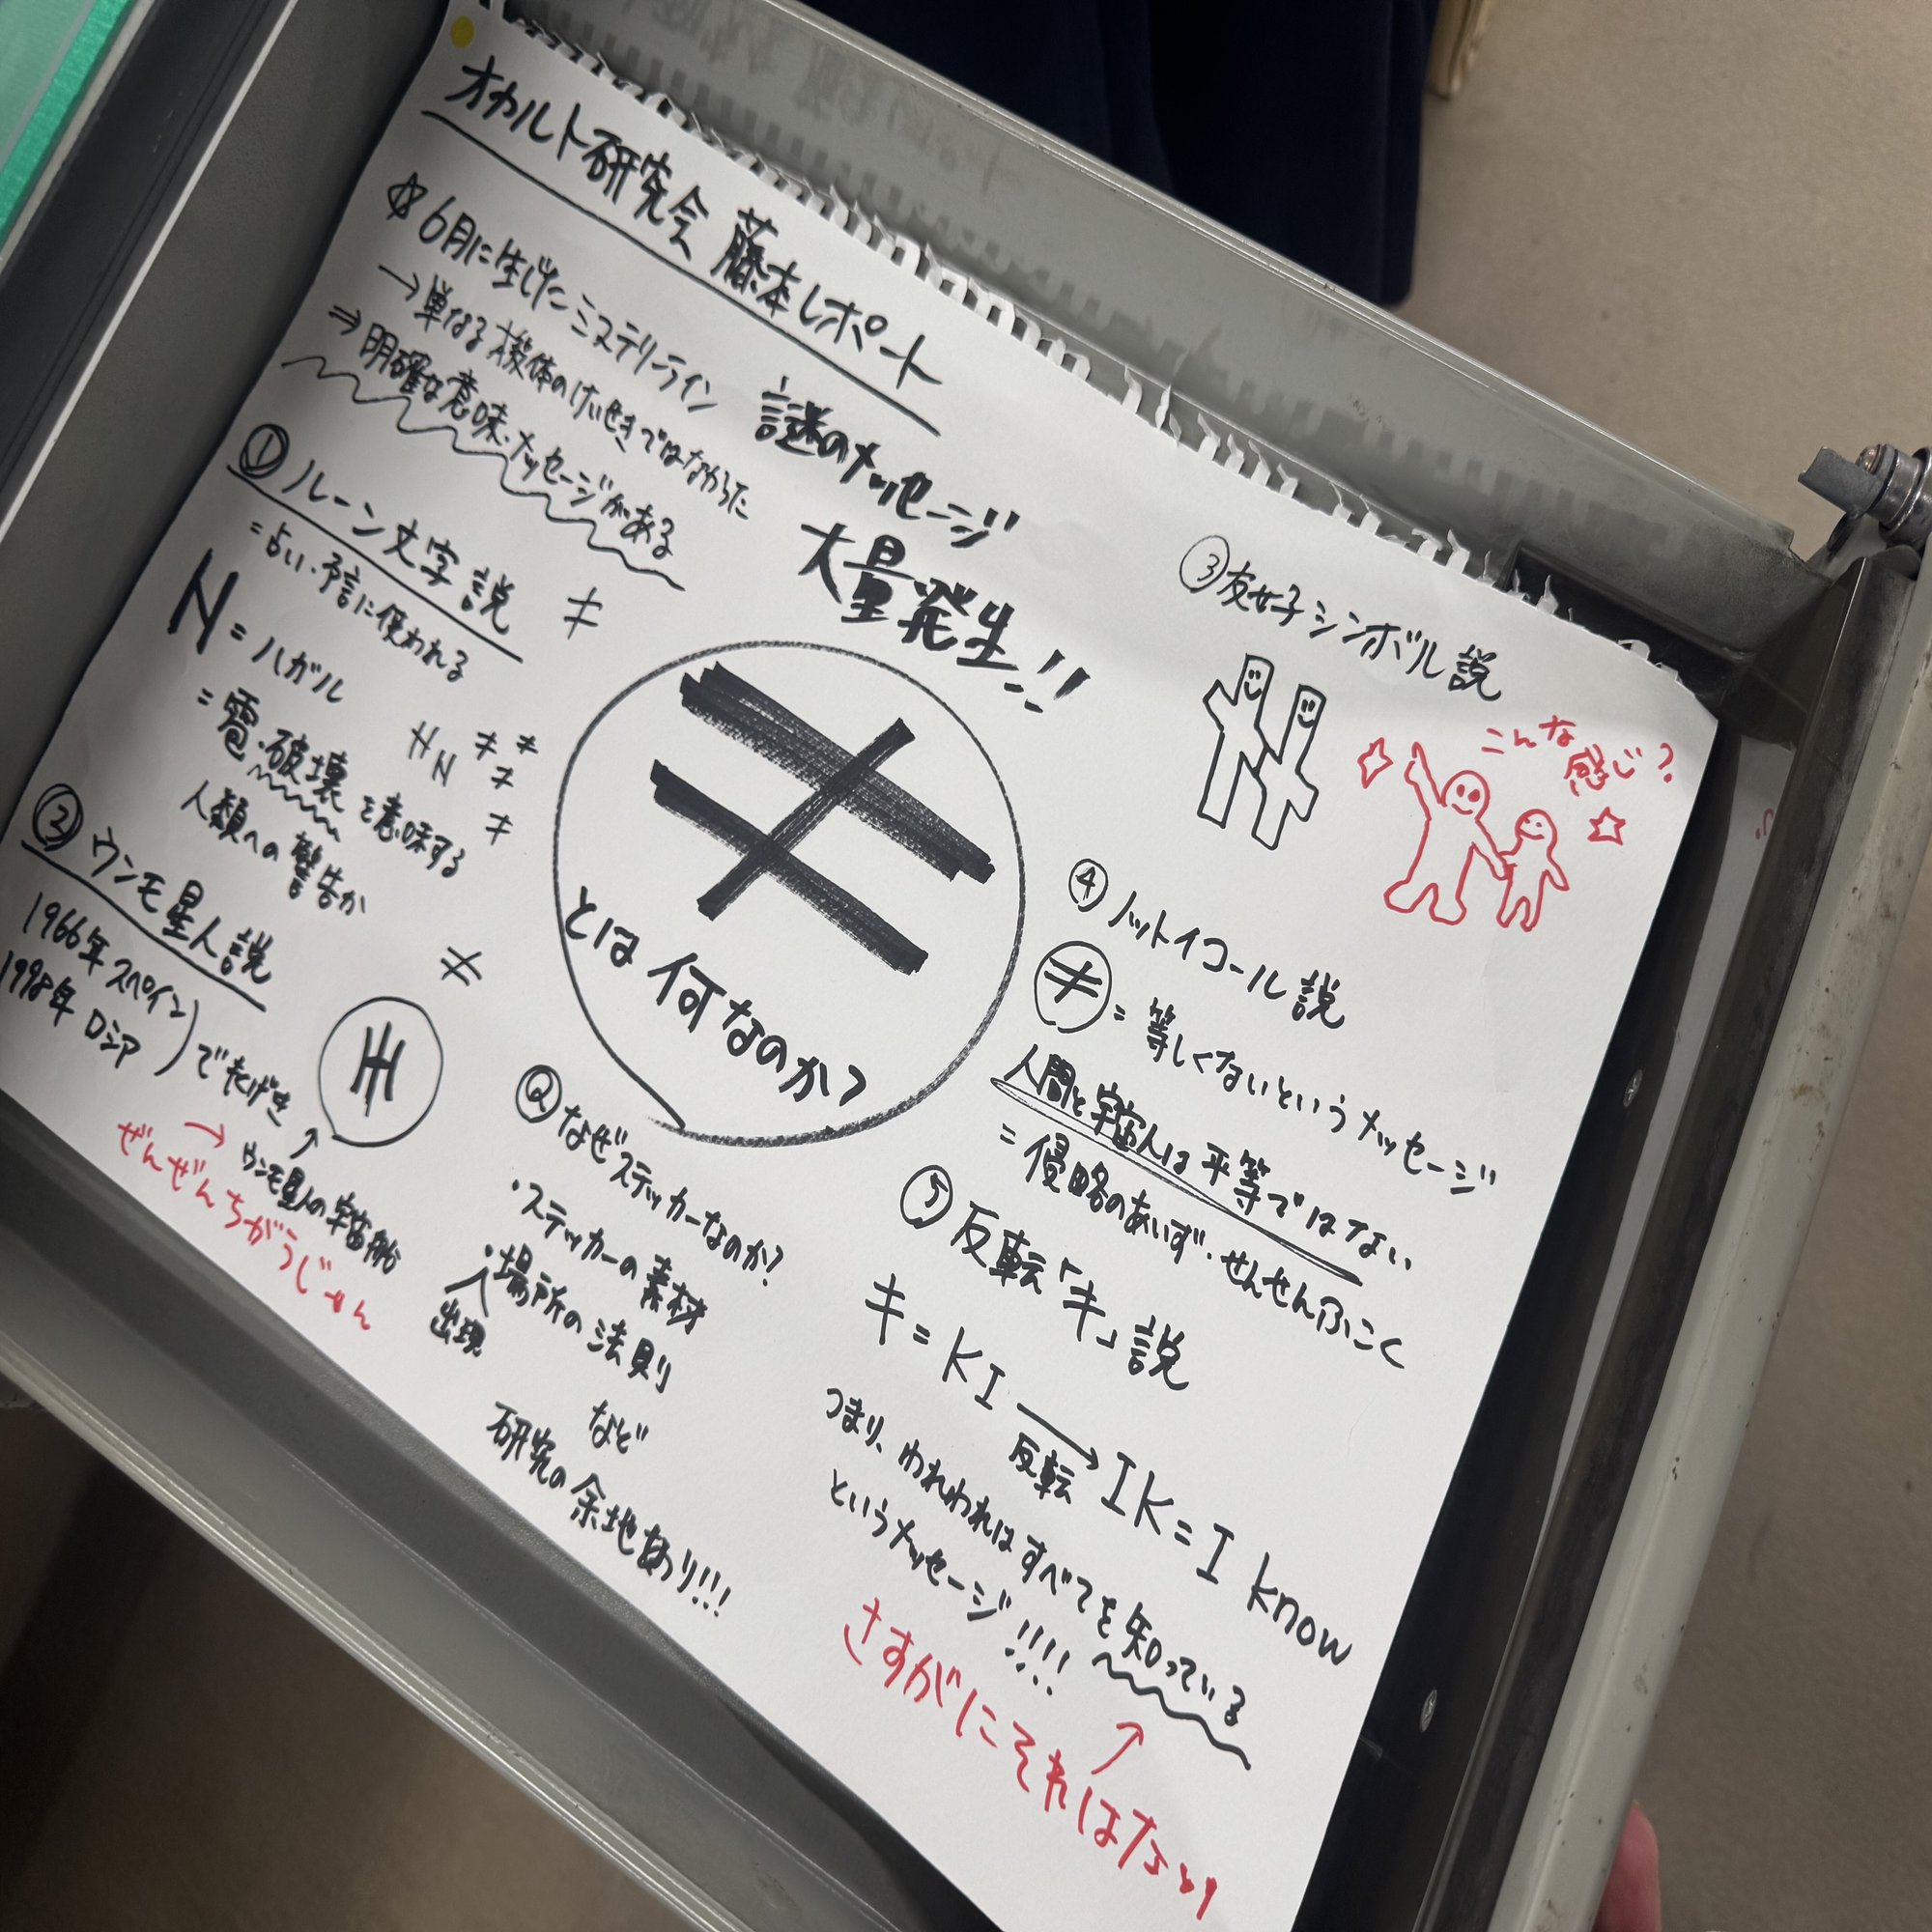 オカルト研究会 藤本レポート
☆6月に生じたミステリーライン
→単なる機体のけいせきではなかった
⇒明確な意味・メッセージがある
謎のメッセージ
大量発生!!
①ルーン文字説
=占い・予言に使われる
N=ハガル
=雹・破壊を意味する
人類への警告か
②ウンモ星人説
1966年 スペイン
1998年 ロシア
でもくげき
→ウンモ星人の宇宙船
ぜんぜんちがうじゃん
≠
とは何なのか?
Qなぜステッカーなのか?
・ステッカーの素材
・場所の法則
出現
など
研究の余地あり!!!
③友好シンボル説
こんな感じ?
④ノットイコール説
≠=等しくないというメッセージ
人間と宇宙人は平等ではない
=侵略のあいず・せんせんふこく
⑤反転「キ」説
キ=KI→IK=I know
反転
つまり、われわれはすべてを知っている
というメッセージ!!!!
さすがにそれはない